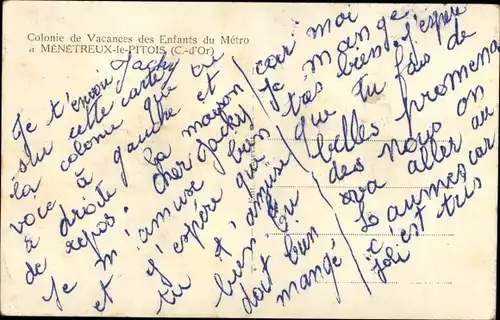 Colonie de Vacances des Enfants du Métro
a MÉNÉTREUX-le-PITOIS (C.-d'Or)
Jacky
Je t'envoi
sur cette carte
la colonie que tu
voie à gauche et
à droite la maison
de repos. Cher Jacky
Je m'amuse bien
et j'espére que
tu t'amuse
bien. Tu
doit bien
mangé
car moi
Je mange
très bien. J'espére
que tu fais de
belles promena
des nous on
va aller au
Laumes car
c'est très
joli